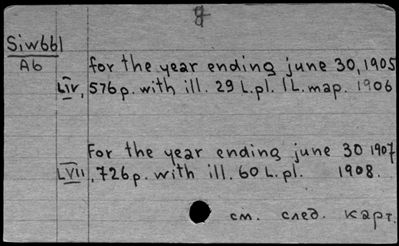 Siw661
A6
for the year ending june 30, 1905
LIV, 576p. with ill. 29 L.pl. 1 L. map. 1906
For the year ending june 30 1907
LVII, 726p. with ill. 60 L.pl. 1908.
см. след. карт.